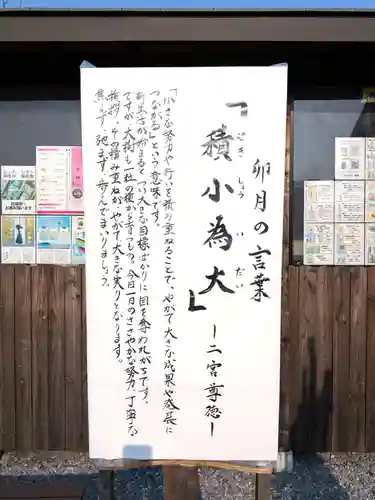 卯月の言葉
「積小為大」
せきしょういだい
ー二宮尊徳ー
「小さな努力や行いを積み重ねることで、やがて大きな成果や発展に
つながる」という意味です。
新年度が始まるとつい大きな目標ばかりに目を奪われがちです。
ですが、大樹も一粒の種から育つもの。今日一日のささやかな努力、丁寧な
挨拶、その積み重ねがやがて大きな実りとなります。
焦らず、弛まず、歩んでまいりましょう。